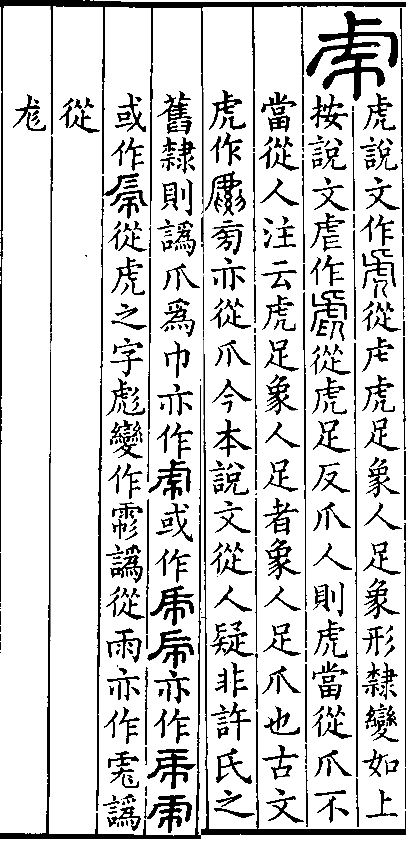 虎說文作從虍虎足象人足象形隸變如上
按說文虐作從虎足反爪人則虎當從爪不
當從人注云虎足象人足者象人足爪也古文
虎作亦從爪今本說文從人疑非許氏之
舊隸則譌爪爲巾亦作或作亦作
或作從虎之字彪變作譌從雨亦作譌
從
尨